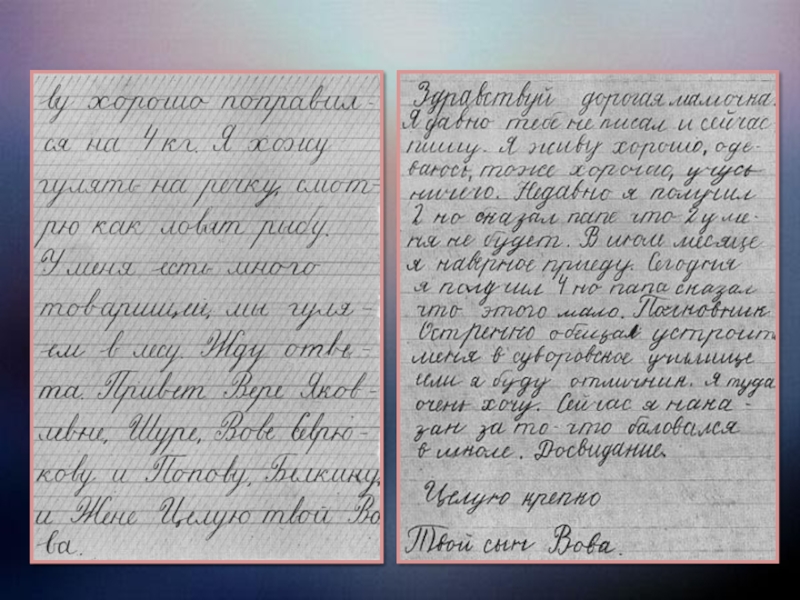 ву хорошо поправил-
ся на 4 кг. Я хожу
гулять на речку, смот-
рю как ловят рыбу.
У меня есть много
товарищей, мы гуля-
ем в лесу. Жду отве-
та. Привет Вере Яков-
левне, Шуре, Вове Севрю-
кову и Попову, Белкину,
и Жене Целую твой Во
ва.
Здравствуй дорогая мамочка.
Я давно тебе не писал и сейчас
пишу. Я живу хорошо, оде-
ваюсь, тоже хорошо, учусь
ничего. Недавно я получил
2 но сказал папе что 2 у ме-
ня не будет. В июм месяце
я наверное приеду. Сегодня
я получил 4 но папа сказал
что этого мало. Полковник
Остренко обещал устроить
меня в суворовское училище
если я буду отличник. Я туда
очень хочу. Сейчас я нака-
зан за то-что баловался
в школе. Досвидание.
Целую крепко
Твой сын Вова.